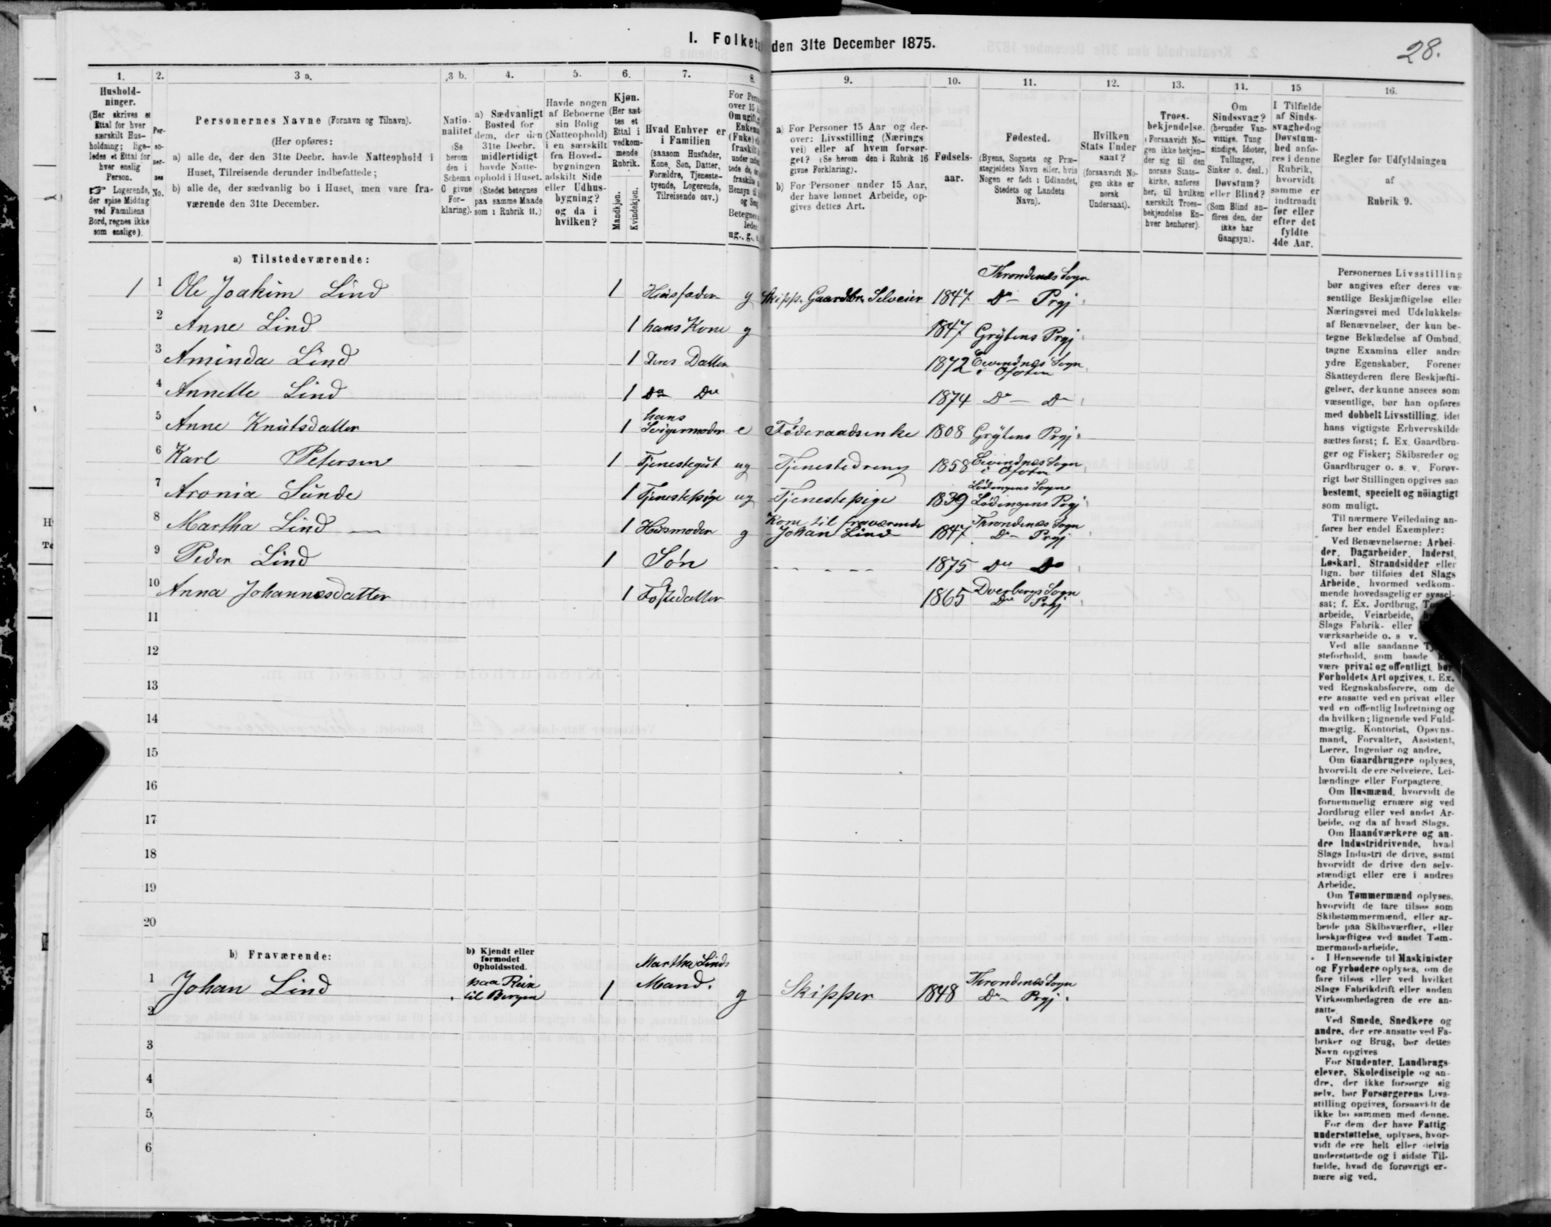 I. Folketæ den 31te December 1875.
28.
1. 2. 3 a. 3 b. 4. 5. 6. 7. 8. 9. 10. 11. 12. 13. 14. 15 16.
Hushold-
ninger.
(Her skrives et
Ettal for hver
særskilt Hus-
holdning; lige-
ledes et Ettal for
hver enslig
Person.
Logerende,
der spise Middag
ved Familiens
Bord, regnes ikke
som enslige).
Per-
so-
ner-
nes
No.
Personernes Navne (Fornavn og Tilnavn).
(Her opføres:
a) alle de, der den 31te Decbr. havde Natteophold i
Huset, Tilreisende derunder indbefattede;
b) alle de, der sædvanlig bo i Huset, men vare fra-
værende den 31te December.
Natio-
nalitet
(Se
herom
den i
Schema
C givne
For-
klaring).
a) Sædvanligt
Bosted for
dem, der den
31te Decbr.
midlertidigt
havde Natte-
ophold i Huset.
(Stedet betegnes
paa samme Maade
som i Rubrik 11.)
Havde nogen
af Beboerne
sin Bolig
(Natteophold)
i en særskilt
fra Hoved-
bygningen
adskilt Side
eller Udhus-
bygning?
og da i
hvilken?
Kjøn.
(Her sæt-
tes et
Ettal i
vedkom-
mende
Rubrik.
Mandkjøn.
Kvindekjøn.
Hvad Enhver er
i Familien
(saasom Husfader,
Kone, Søn, Datter,
Forældre, Tjeneste-
tyende, Logerende,
Tilreisende osv.)
a) For Personer 15 Aar og der-
over: Livsstilling (Nærings-
vei) eller af hvem forsør-
get? (Se herom den i Rubrik 16
givne Forklaring).
b) For Personer under 15 Aar,
der have lønnet Arbeide, op-
gives dettes Art.
Fødsels-
aar.
Fødested.
(Byens, Sognets og Præ-
stegjeldets Navn eller, hvis
Nogen er født i Udlandet,
Stedets og Landets
Navn).
Hvilken
Stats Under
saat?
(forsaavidt No-
gen ikke er
norsk
Undersaat).
Troes-
bekjendelse.
(Forsaavidt No-
gen ikke bekjen-
der sig til den
norske Stats-
kirke, anføres
her, til hvilken
særskilt Troes-
bekjendelse En-
hver henhører).
Om
Sindssvag?
(herunder Van-
vittige, Tung
sindige, Idioter,
Tullinger,
Sinker o. desl.)
Døvstum?
eller Blind?
(Som Blind an-
føres den, der
ikke har
Gangsyn).
I Tilfælde
af Sinds-
svaghed og
Døvstum-
hed anfø-
res i denne
Rubrik,
hvorvidt
samme er
indtraadt
før eller
efter det
fyldte
4de Aar.
Regler før Udfyldningen
af
Rubrik 9.
a) Tilstedeværende:
1 1 Ole Joakim Lind 1 Huusfader g Skipp. Gaardbr. Selveier 1847 Throndenæs Sogn Do Prgj
2 Anne Lind 1 hans Kone g 1847 Grÿtens Prgj
3 Aminda Lind 1 Deres Datter 1872 Evendnæs Sogn i Ofoten
4 Annette Lind 1 Do Do 1874 Do Do
5 Anne Knutsdatter 1 hans Svigermoder e Føderaadsenke 1808 Grÿtens Prgj
6 Karl Petersen 1 Tjenestegut ug Tjenestedreng 1858 Evendnæs Sogn i Ofoten
7 Aronia Sunde 1 Tjenestepige ug Tjenestepige 1839 Lødingens Sogn Lødingens Prgj
8 Martha Lind 1 Husmoder g Kone til fraværende Johan Lind 1847 Throndenæs Sogn Do Prgj
9 Peder Lind 1 Søn 1875 Do Do
10 Anna Johannesdatter 1 Fostedatter 1865 Dverbergs Sogn Do Prgj
11
12
13
14
15
16
17
18
19
20
b) Fraværende:
b) Kjendt eller
formodet
Opholdssted.
1 Johan Lind paa Reise til Bergen 1 Martha Linds Mand. g Skipper 1848 Throndenæs Sogn Do Prgj.
2
3
4
5
6
Personernes Livsstilling
bør angives efter deres væ-
sentlige Beskjæftigelse eller
Næringsvei med Udelukkelse
af Benævnelser, der kun be-
tegne Beklædelse af Ombud,
tagne Examina eller andre
ydre Egenskaber. Forener
Skatteyderen flere Beskjæfti-
gelser, der kunne ansees som
væsentlige, bør han opføres
med dobbelt Livsstilling, idet
hans vigtigste Erhvervskilde
sættes først; f. Ex. Gaardbru-
ger og Fisker; Skibsreder og
Gaardbruger o. s. v. Forøv-
rigt bør Stillingen opgives saa
bestemt, specielt og nøiagtigt
som muligt.
Til nærmere Veiledning an-
føres her endel Exempler:
Ved Benævnelserne: Arbei-
der, Dagarbeider, Inderst,
Løskarl, Strandsidder eller
lign. bør tilføies det Slags
Arbeide, hvormed vedkom-
mende hovedsagelig er syssel-
sat; f. Ex. Jordbrug,
arbeide, Veiarbeide,
Slags Fabrik- eller
værksarbeide o. s. v.
Ved alle saadanne
steforhold, som baade
være privat og offentligt, bør
Forholdets Art opgives, t. Ex.
ved Regnskabsførere, om de
ere ansatte ved en privat eller
ved en offentlig Indretning og
da hvilken; lignende ved Fuld-
mægtig, Kontorist, Opsyns-
mand, Forvalter, Assistent,
Lærer, Ingeniør og andre.
Om Gaardbrugere oplyses,
hvorvidt de ere Selveiere, Lei-
lændinge eller Forpagtere.
Om Husmænd, hvorvidt de
fornemmelig ernære sig ved
Jordbrug eller ved andet Ar-
beide, og da af hvad Slags.
Om Haandværkere og an-
dre Industridrivende, hvad
Slags Industri de drive, samt
hvorvidt de drive den selv-
stændigt eller ere i andres
Arbeide.
Om Tømmermænd oplyses,
hvorvidt de fare tilsøs som
Skibstømmermænd, eller ar-
beide paa Skibsværfter, eller
beskjæftiges ved andet Tøm-
mermandsarbeide.
I Henseende til Maskinister
og Fyrbødere oplyses, om de
fare tilsøs eller ved hvilket
Slags Fabrikdrift eller anden
Virksomhedsgren de ere an-
satte.
Ved Smede, Snedkere og
andre, der ere ansatte ved Fa-
briker og Brug, bør dettes
Navn opgives
For Studenter, Landbrugs-
elever, Skoledisciple og an-
dre, der ikke forsørge sig
selv, bør Forsørgerens Livs-
stilling opgives, forsaavidt de
ikke bo sammen med denne.
For dem, der have Fattig-
understøttelse, oplyses, hvor-
vidt de ere helt eller delvis
understøttede og i sidste Til-
fælde, hvad de forøvrigt er-
nære sig ved.